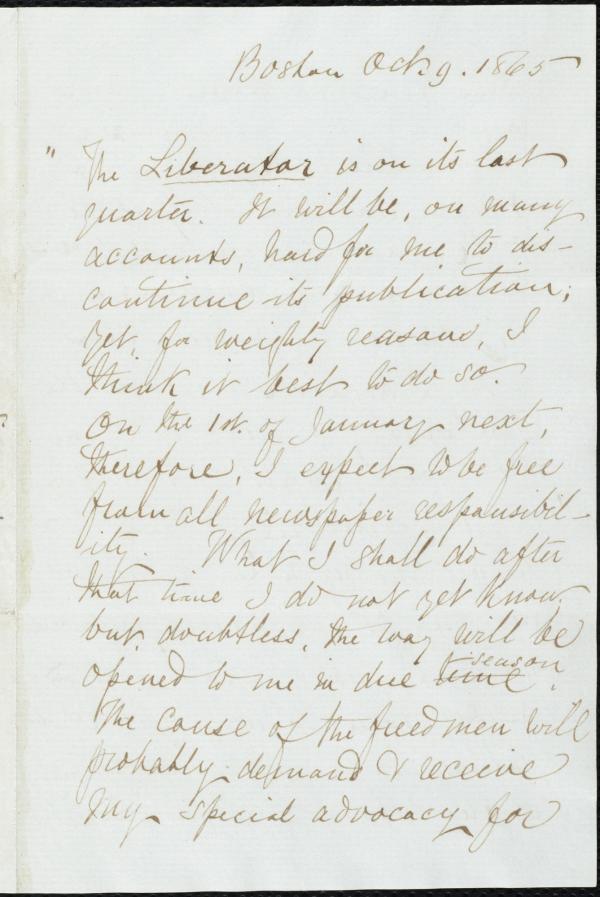 Boston Oct. 9. 1865
" The Liberator is on its last
quarter. It will be, on many
accounts, hard for me to dis-
continue its publication;
yet, for weighty reasons, I
think it best to do so.
On the 1st. of January next,
therefore, I expect to be free
from all newspaper responsibil-
ity. What I shall do after
that time I do not yet know,
but, doubtless, the way will be
opened to me in due time season.
The cause of the freedmen will
probably demand & receive
my special advocacy for